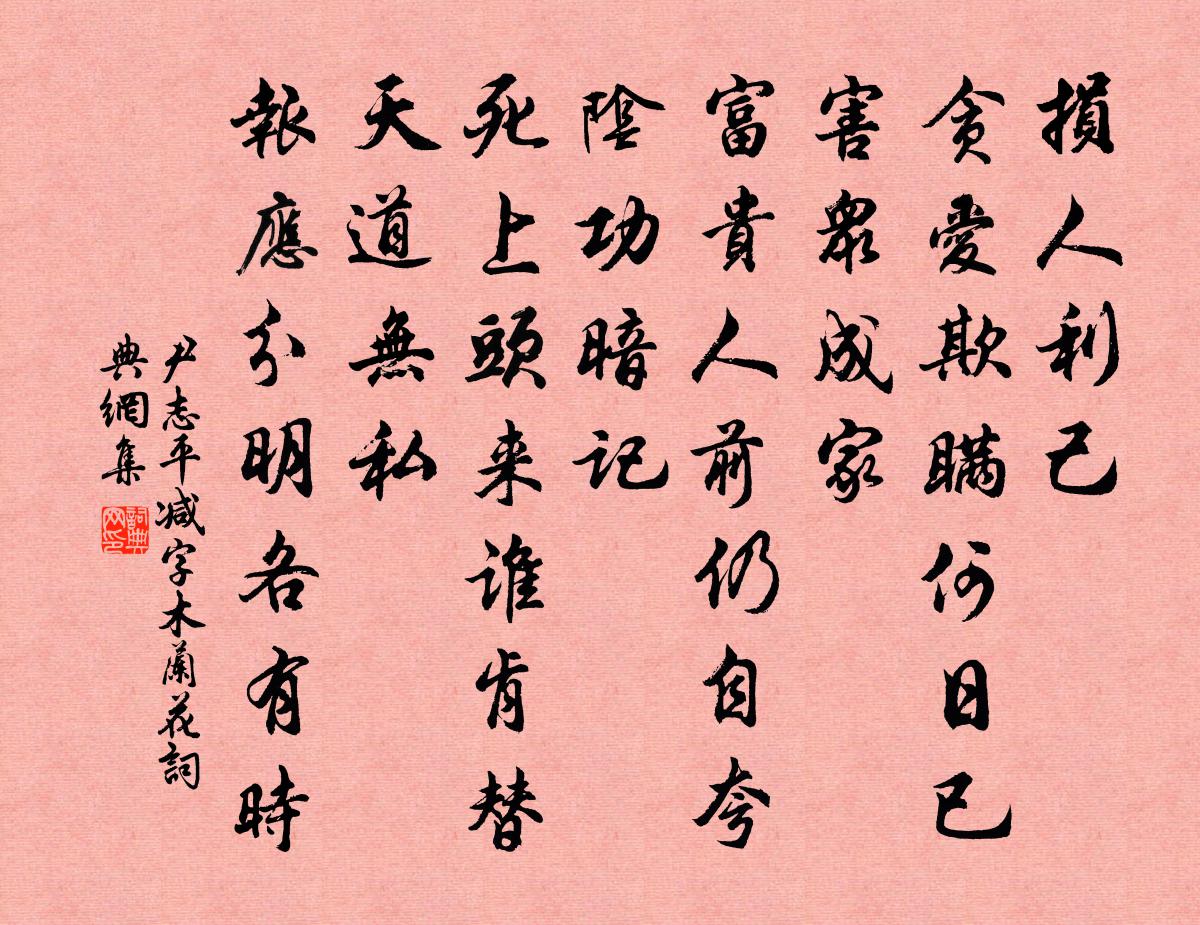 損人利己
貪愛欺瞞何日已
害眾成家
富貴人前仍自夸
陰功暗記
死上頭来誰肯替
天道無私
報應分明各有時
尹志平減字木蘭花詞
典網集
詞典网印